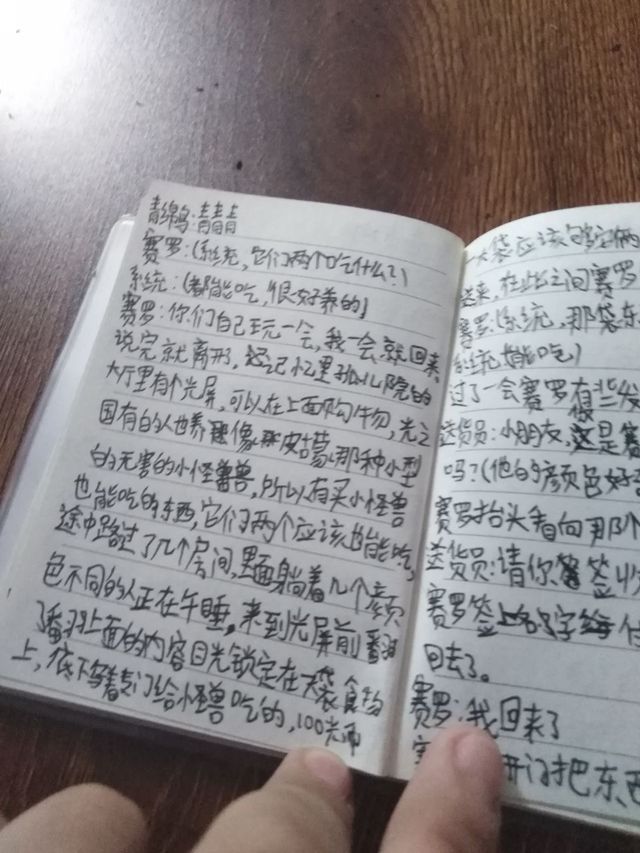 青绵鸟:青青青
赛罗:(系统,它们两个吃什么?)
系统:(都能吃,很好养的)
赛罗:你们自己玩一会,我一会就回来,
说完就离开,还记忆里孤儿院的
大厅里有个光屏,可以在上面购物,光之
国有的人也养像皮古蒙那种小型
的无害的小怪兽,所以有买小怪兽
也能吃的东西,它们两个应该也能吃,
途中路过了几个房间,里面躺着几个颜
色不同的人正在午睡,来到光屏前翻
了翻上面的内容目光锁定在大袋食物
上,底下写着专门给怪兽吃的,100光币
一大袋应该够它俩
送来,在此之间赛罗
赛罗:(系统,那袋东
系统:能吃)
过了一会赛罗有些发
送货员:小朋友,这是赛
吗?(他的颜色好
赛罗抬头看向那个
送货员:请你签收
赛罗签上名字
回去了。
赛罗:我回来了
开门把东西